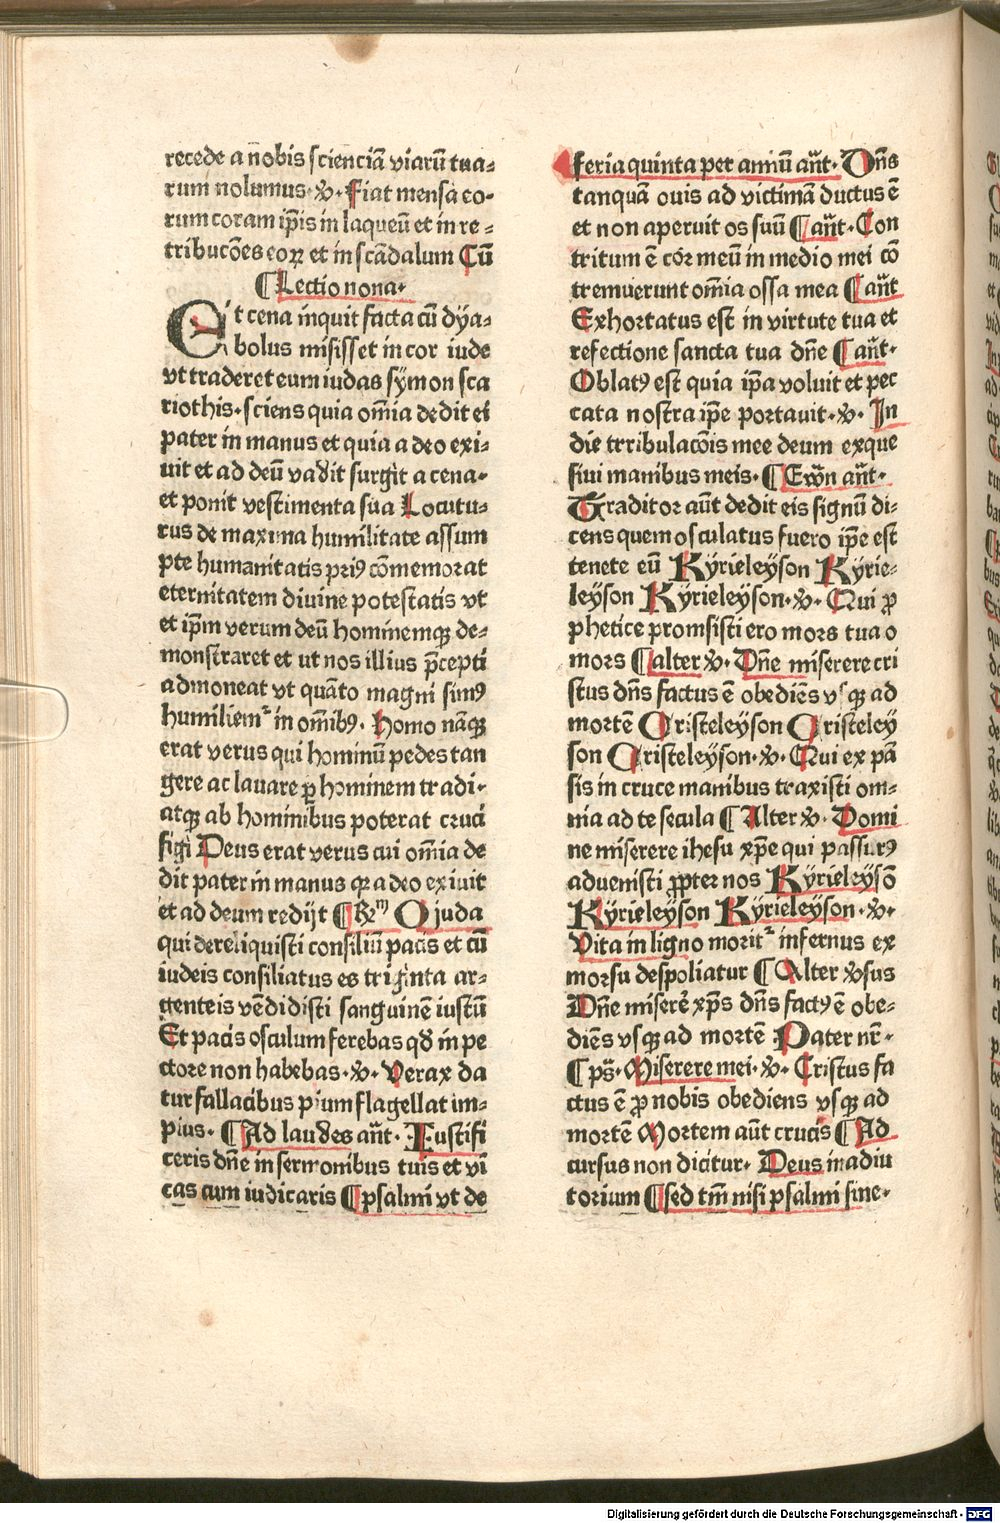 recede a nobis scienciā viarū tua⸗
rum nolumus · v̄ · Fiat mensa eo⸗
rum coram ip̄is in laqueū et in re⸗
tribucōes eoꝝ et in scādalum Cū
¶ Lectio nona ·
Et cena inquit facta cū dÿa⸗
bolus misisset in cor iude
vt traderet eum iudas sÿmon sca
riothis · sciens quia om̄ia dedit ei
pater in manus et quia a deo exi⸗
uit et ad deū vadit surgit a cena ·
et ponit vestimenta sua Locutu⸗
rus de maxima humilitate assum
pte humanitatis priꝰ cōmemorat
eternitatem diuine potestatis vt
et ip̄m verum deū hominemqꝫ de⸗
monstraret et ut nos illius p̄cepti
admoneat vt quāto magni simꝰ
humiliemꝛ in om̄ibꝰ · Homo nāqꝫ
erat verus qui hominū pedes tan
gere ac lauare ꝑ hominem tradi ·
atqꝫ ab hominibus poterat cruci
figi Deus erat verus cui om̄ia de
dit pater in manus qꝛ a deo exiuit
et ad deum redijt ¶ Rm̄ O juda
qui dereliquisti consiliū pacis et cū
iudeis consiliatus es triginta ar⸗
genteis vēdidisti sanguinē iustū
Et pacis osculum ferebas qd̄ in pe
ctore non habebas · v̄ · Verax da
tur fallacibus pium flagellat im⸗
pius · ¶ Ad laudes an̄t · Iustifi
ceris dn̄e in sermonibus tuis et vi
cas cum iudicaris ¶ psalmi vt de
feria quinta per annū an̄t · Dn̄s
tanquā ouis ad victimā ductus ē
et non aperuit os suū ¶ an̄t · Con
tritum ē cor meū in medio mei cō
tremuerunt om̄ia ossa mea ¶ an̄t
Exhortatus est in virtute tua et
refectione sancta tua dn̄e ¶ an̄t ·
Oblatꝰ est quia ip̄a voluit et pec
cata nostra ip̄e portauit · v̄ · In
die trribulacōis mee deum exque
siui manibus meis · ¶ Ewn̄ an̄t ·
Traditor aūt dedit eis signū di⸗
cens quem osculatus fuero ip̄e est
tenete eū Kÿrieleÿson Kÿrie⸗
leÿson Kÿrieleÿson · v̄ · Qui ꝓ
phetice promsisti ero mors tua o
mors ¶ alter v̄ · Dn̄e miserere cri
stus dn̄s factus ē obediēs vsqꝫ ad
mortē Cristeleÿson Cristeleÿ
son Cristeleÿson · v̄ · Qui expā
sis in cruce manibus traxisti om⸗
nia ad te secula ¶ Alter v̄ · Domi
ne miserere ihesu xp̄e qui passurꝰ
aduenisti ꝓpter nos Kÿrieleÿsō
Kÿrieleÿson Kÿrieleÿson · v̄ ·
Vita in ligno moritꝛ infernus ex
morsu despoliatur ¶ Alter v̄sus
Dn̄e miserē xp̄s dn̄s factꝰ ē obe⸗
diēs vsqꝫ ad mortē Pater nr̄ ·
¶ ps̄ · Miserere mei · v̄ · Cristus fa
ctus ē ꝓ nobis obediens vsqꝫ ad
mortē Mortem aūt crucis ¶ Ad
cursus non dicitur · Deus in adiu
torium ¶ sed tm̄ nisi psalmi sine ·
Digitalisierung gefördert durch die Deutsche Forschungsgemeinschaft - DFG